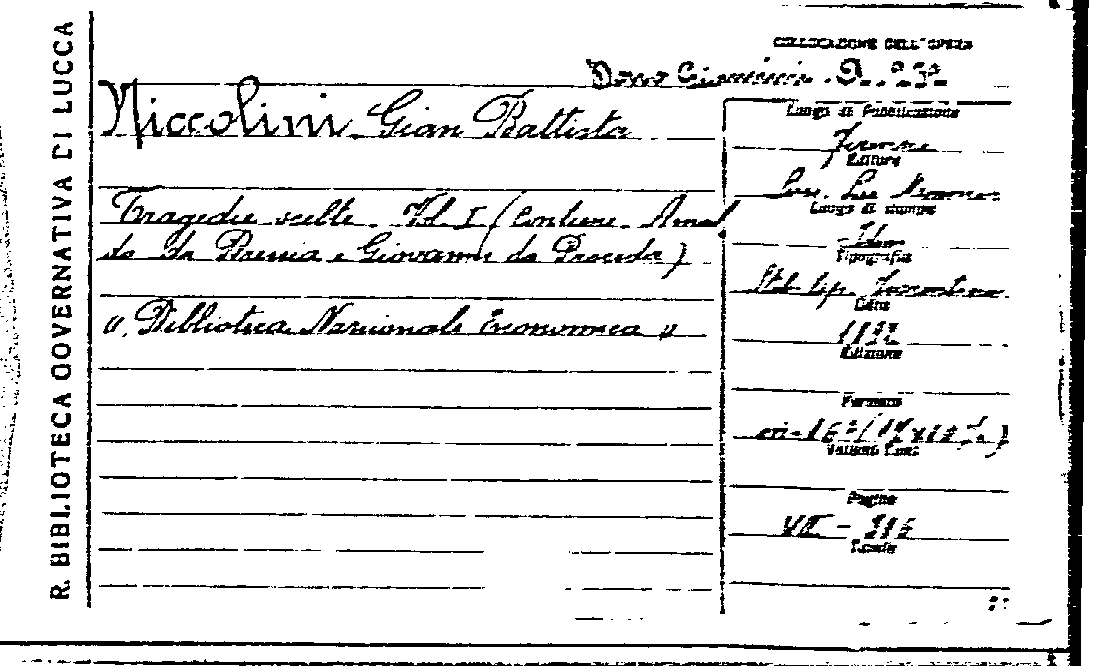 R. BIBLIOTECA GOVERNATIVA DI LUCCA
COLLOCAZIONE DELL'OPERA
Dono
Niccolini Gian Battista
Tragedie scelte. Vol. I (Contiene Arnal
do da Brescia e Giovanni da Procida)
"Biblioteca Nazionale Economica"
Luogo di Pubblicazione
Firenze
Editore
Succ. Le Monnier
Luogo di stampa
Idem
Tipografia
Stab. tip. Fiorentino
Data
Edizione
Formato
in-16°
Volumi
Pagine
VII -
Tavole